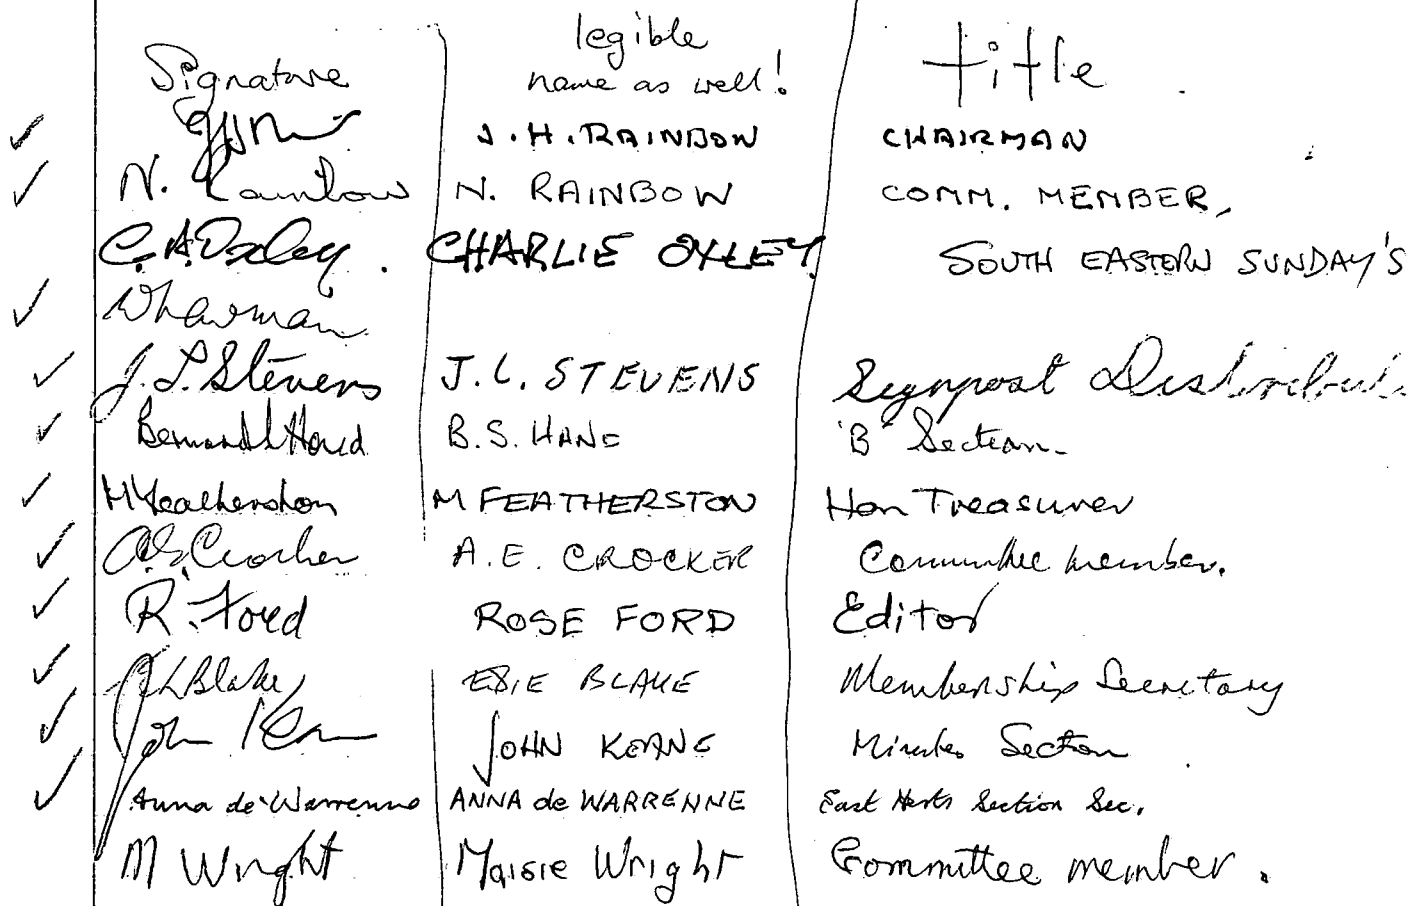 legible
Signature name as well! title
J. H. RAINBOW CHAIRMAN
N. Rainbow N. RAINBOW COMM. MEMBER,
C. A. Oxley. CHARLIE OXLEY. SOUTH EASTERN SUNDAY'S
J. L. Stevens J. L. STEVENS Signpost
B. S. 'B' Section.
M Featherston M FEATHERSTON Hon Treasurer
A E Crocker A. E. CROCKER Committee member.
R. Ford ROSE FORD Editor
Blake BLAKE Membership Secretary
John JOHN KEANE Section
Anna de Warrenne ANNA de WARRENNE East Herts Section Sec.
M Wright Maisie Wright Committee member.